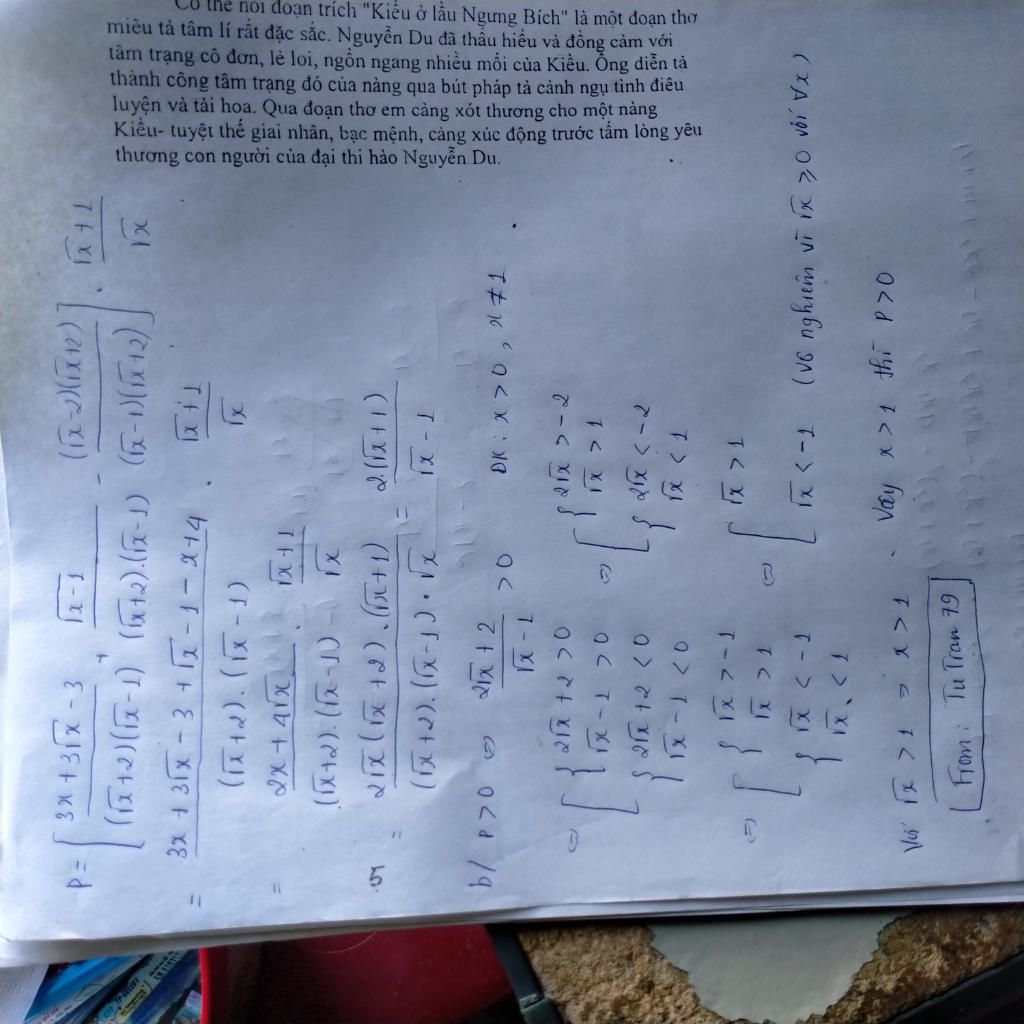 Có thể nói đoạn trích "Kiều ở lầu Ngưng Bích" là một đoạn thơ
miêu tả tâm lí rất đặc sắc. Nguyễn Du đã thấu hiểu và đồng cảm với
tâm trạng cô đơn, lẻ loi, ngổn ngang nhiều mối của Kiều. Ông diễn tả
thành công tâm trạng đó của nàng qua bút pháp tả cảnh ngụ tình điêu
luyện và tài hoa. Qua đoạn thơ em càng xót thương cho một nàng
Kiều- tuyệt thế giai nhân, bạc mệnh, càng xúc động trước tấm lòng yêu
thương con người của đại thi hào Nguyễn Du.
P = [ (3x + 3√x - 3)/((√x+2)(√x-1)) + (√x-1)/((√x+2).(√x-1)) - ((√x-2)(√x+2))/((√x-1)(√x+2)) ] . (√x+1)/√x
= (3x + 3√x - 3 + √x - 1 - x + 4)/((√x+2).(√x-1)) . (√x+1)/√x
= (2x + 4√x)/((√x+2).(√x-1)) . (√x+1)/√x
5
= (2√x(√x+2).(√x+1))/((√x+2).(√x-1).√x) = (2.(√x+1))/(√x-1)
b/ P > 0 ⇔ (2√x+2)/(√x-1) > 0 ĐK: x > 0, x ≠ 1
⇔ [ { 2√x+2 > 0 ⇔ [ { 2√x > -2
√x-1 > 0 √x > 1
{ 2√x+2 < 0 { 2√x < -2
√x-1 < 0 √x < 1
⇔ [ { √x > -1 ⇔ [ √x > 1
√x > 1
{ √x < -1 √x < -1 (vô nghiệm vì √x ≥ 0 với ∀x)
√x < 1
Với √x > 1 ⇒ x > 1. Vậy x > 1 thì P > 0
From: Tu Tran 79